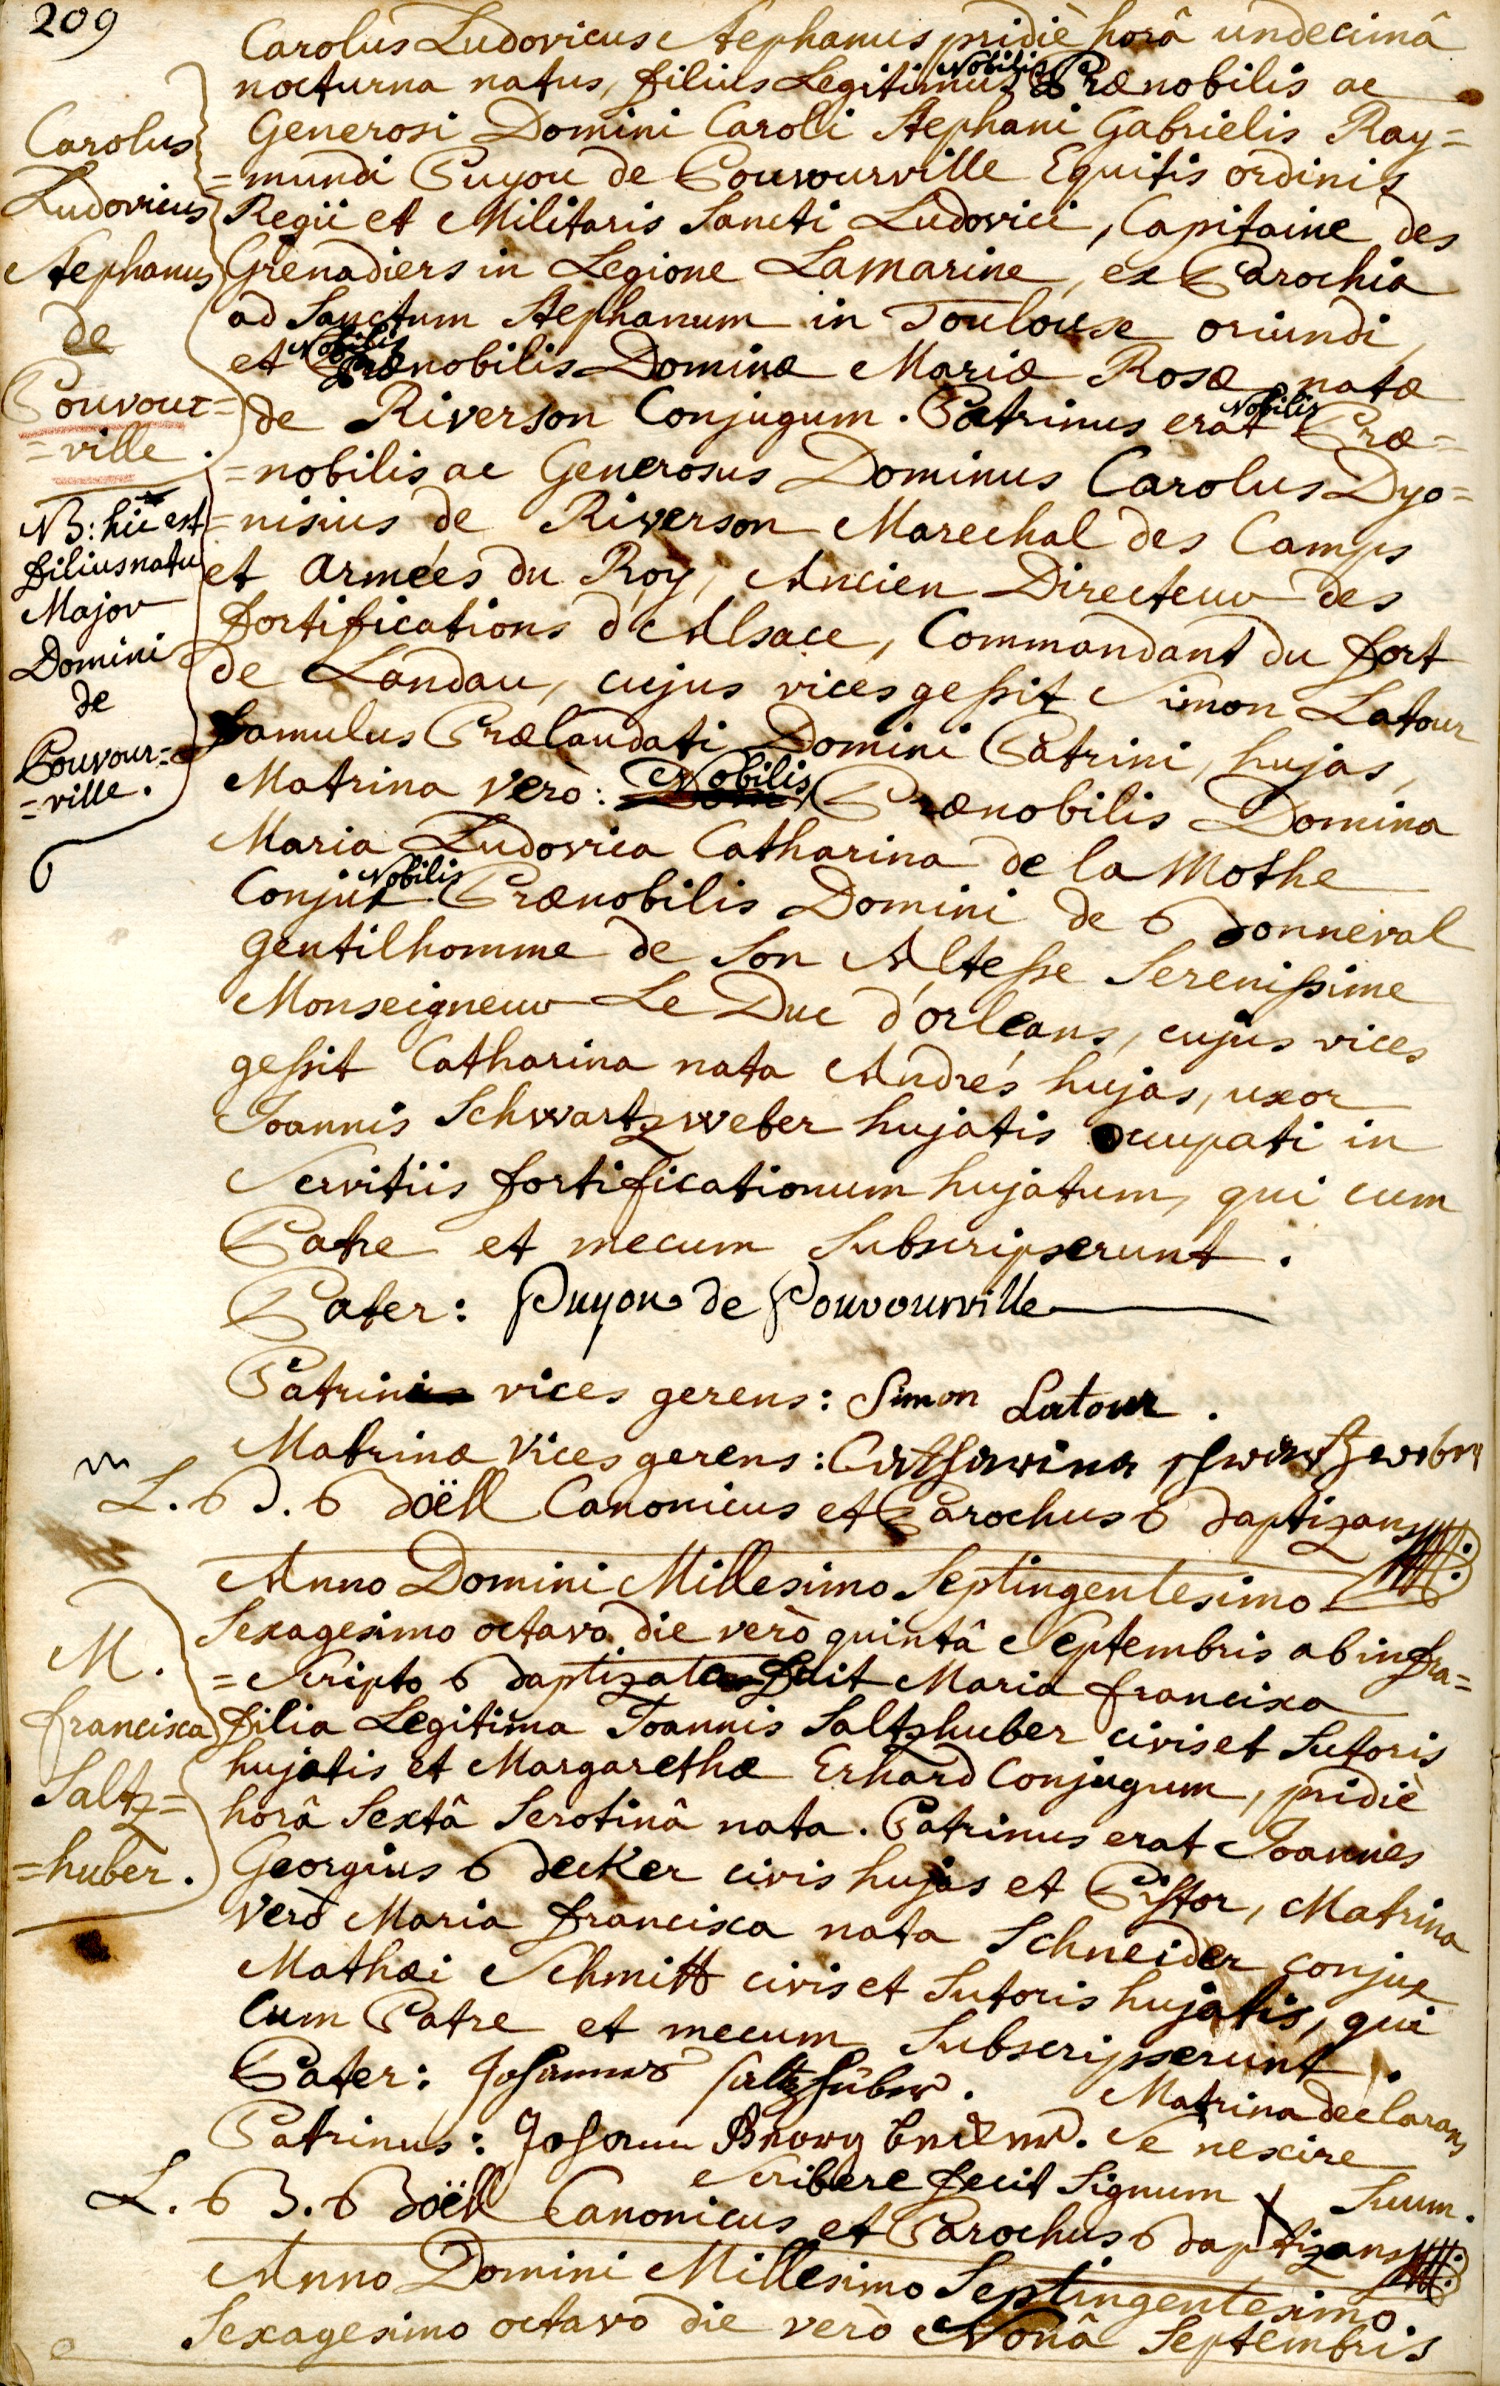 209
Carolus Ludovicus Stephanus pridiè horâ undecimâ
nocturna natus, filius Legitimus Nobilis Prænobilis ac
Generosi Domini Caroli Stephani Gabrielis Ray=
=mundi Puyou de Pouvourville Equitis ordinis
Regii et Militaris Sancti Ludovici, Capitaine des
Grenadiers in Legione Lamarine, ex Parochia
ad Sanctum Stephanum in Toulouse oriundi,
et Nobilis Prænobilis Dominæ Mariæ Rosæ natæ
de Riverson Conjugum. Patrinus erat Nobilis Præ=
=nobilis ac Generosus Dominus Carolus Dyo=
=nisius de Riverson Marechal des Camps
et armées du Roy, Ancien Directeur des
fortifications d'Alsace, Commandant du fort
de Landau, cujus vices gessit Simon Latour
famulus Prælaudati Domini Patrini, hujas,
Matrina Verò: Nobilis Prænobilis Domina
Maria Ludovica Catharina de la Mothe
Conjux Nobilis Prænobilis Domini de Bonneval
Gentilhomme de Son Altesse Serenissime
Monseigneur Le Duc d'orleans, cujus vices
gessit Catharina nata Andrés hujas, uxor
Joannis Schwartzweber hujatis occupati in
Servitiis fortificationum hujatum, qui cum
Patre et mecum Subscripserunt.
Pater: Puyou de Pouvourville
Patrini vices gerens: Simon Latour.
Matrinæ Vices gerens: Catharina schwartzweberin
L. B. Boëll Canonicus et Parochus Baptizans
Carolus
Ludovicus
Stephanus
de
Pouvour=
=ville.
NB: hic est
filius natu
Major
Domini
de
Pouvour=
=ville.
Anno Domini Millesimo Septingentesimo
Sexagesimo octavo die verò quintâ Septembris ab infra=
=Scripto Baptizata fuit Maria francisca
filia Legitima Joannis Saltzhuber civis et Sutoris
hujatis et Margarethæ Erhard Conjugum, pridiè
horâ Sextâ Serotinâ nata. Patrinus erat Joannes
Georgius Becker civis hujas et Pistor, Matrina
verò Maria francisca nata Schneider conjux
Mathæi Schmitt civis et Sutoris hujatis, qui
Cum Patre et mecum Subscripserunt.
Pater: Johannes saltzhuber. Matrina declarans
Patrinus: Johann Georg becker. Se nescire
Scribere fecit Signum X Suum.
L. B. Boëll Canonicus et Parochus Baptizans
M.
francisca
Saltz=
=huber.
Anno Domini Millesimo Septingentesimo
Sexagesimo octavo die verò Nonâ Septembris